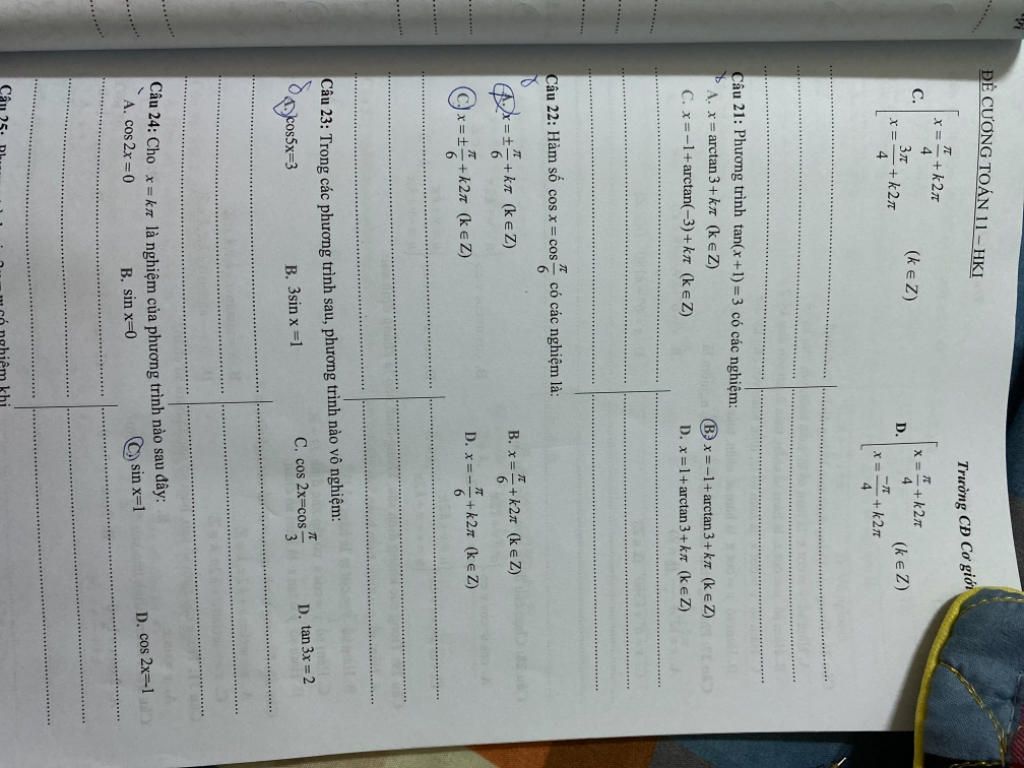 ĐỀ CƯƠNG TOÁN 11 – HK1 Trường CD Cơ giới
C. [x = π/4 + k2π; x = 3π/4 + k2π (k ∈ Z) D. [x = π/4 + k2π; x = -π/4 + k2π (k ∈ Z)
Câu 21: Phương trình tan(x+1) = 3 có các nghiệm:
A. x = arctan3 + kπ (k ∈ Z) B. x = -1 + arctan3 + kπ (k ∈ Z)
C. x = -1 + arctan(-3) + kπ (k ∈ Z) D. x = 1 + arctan3 + kπ (k ∈ Z)
Câu 22: Hàm số cos x = cos π/6 có các nghiệm là:
A. x = ± π/6 + kπ (k ∈ Z) B. x = π/6 + k2π (k ∈ Z)
C. x = ± π/6 + k2π (k ∈ Z) D. x = - π/6 + k2π (k ∈ Z)
Câu 23: Trong các phương trình sau, phương trình nào vô nghiệm:
A. cos5x=3 B. 3sin x =1 C. cos 2x=cos π/3 D. tan3x = 2
Câu 24: Cho x = kπ là nghiệm của phương trình nào sau đây:
A. cos2x = 0 B. sin x=0 C. sin x=1 D. cos 2x=-1
Câu 25: có nghiệm khi